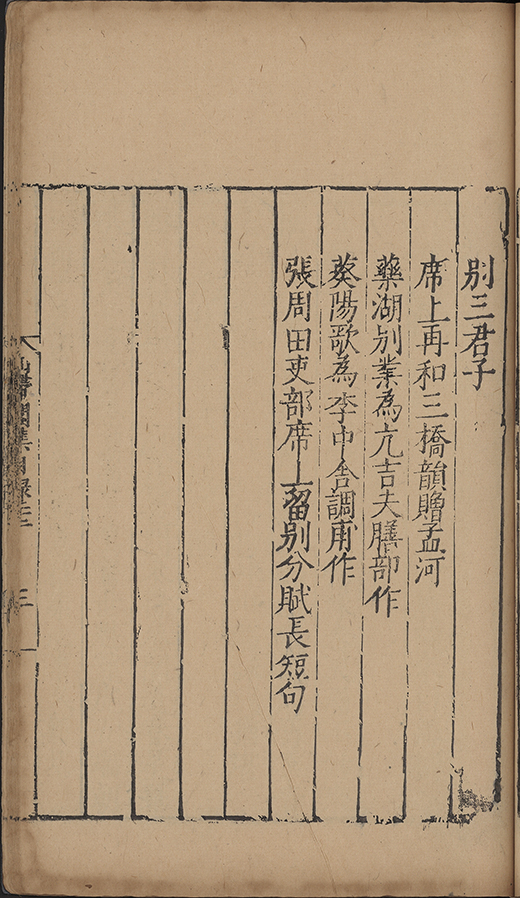 別三君子
席上再和三橋韻贈孟河
藥湖別業為亢吉夫膳部作
葵陽歌為李中舍調甫作
張周田吏部席上留別分賦長短句
集目錄
三